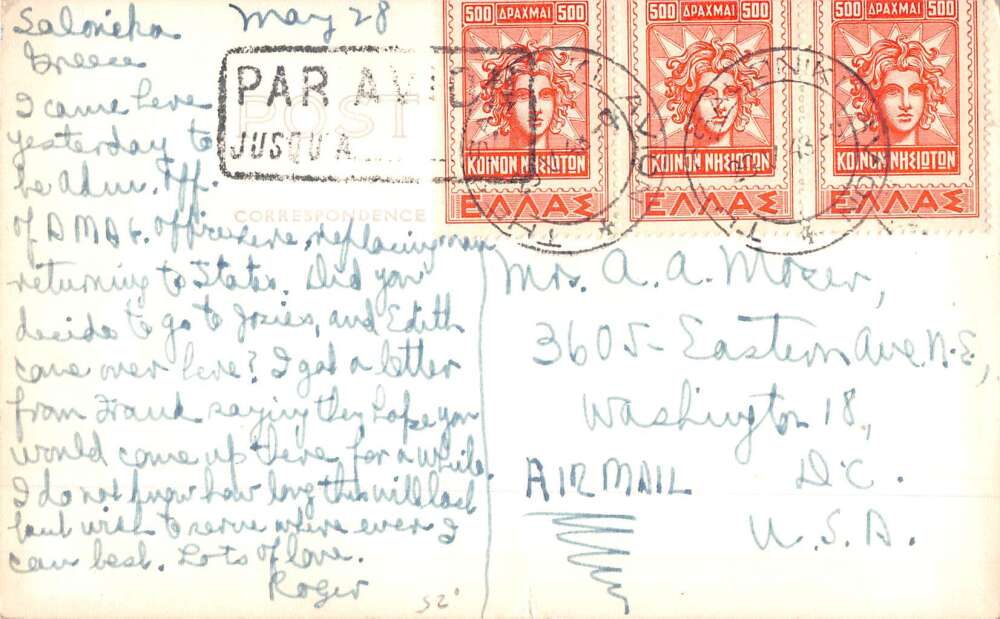 Salonika May 28
Greece
I came here
yesterday to
be Adm. Off.
of AMAG. office here, replacing man
returning to States. Did you
decide to go to Josies, and Edith
come over here? I got a letter
from Frank saying they hope you
would come up there for a while.
I do not know how long this will last
but wish to serve where ever I
can best. Lots of love.
Roger
52°
POST
CORRESPONDENCE
PAR AVION
JUSQU'A
500 ΔΡΑΧΜΑΙ 500
ΚΟΙΝΟΝ ΝΗΣΙΩΤΩΝ
ΕΛΛΑΣ
500 ΔΡΑΧΜΑΙ 500
ΚΟΙΝΟΝ ΝΗΣΙΩΤΩΝ
ΕΛΛΑΣ
500 ΔΡΑΧΜΑΙ 500
ΚΟΙΝΟΝ ΝΗΣΙΩΤΩΝ
ΕΛΛΑΣ
Mrs. A. A. Mozer,
3605 - Eastern Ave. N.E.,
Washington 18,
D.C.
AIRMAIL
U.S.A.